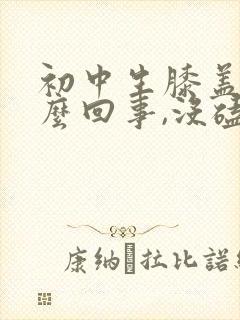 初中生膝盖
麽回事,没磕
康纳·拉比諾